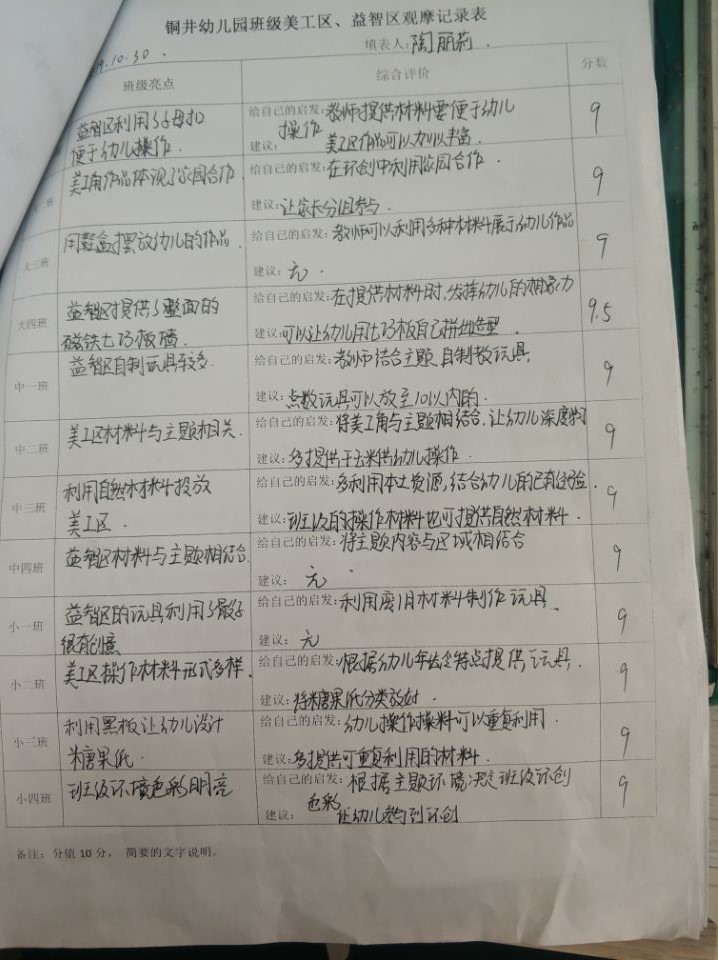 铜井幼儿园班级美工区、益智区观摩记录表
.10.30. 填表人:陶丽莉.
班级亮点 综合评价 分数
益智区利用了子母扣 给自己的启发:教师提供材料要便于幼儿 9
便于幼儿操作. 操作.
建议: 美工区作品可以加以丰富.
班 美工角作品体现了家园合作. 给自己的启发:在环创中利用家园合作. 9
建议:让家长分组参与.
大三班 用鞋盒摆放幼儿的作品. 给自己的启发:教师可以利用多种材料展示幼儿作品 9
建议: 无.
大四班 益智区提供了整面的 给自己的启发:在提供材料时,发挥幼儿的想象力 9.5
磁铁七巧板墙. 建议:可以让幼儿用七巧板自己拼组造型.
中一班 益智区自制玩具较多. 给自己的启发:教师结合主题,自制教玩具. 9
建议:点数玩具可以放至10以内的.
中二班 美工区材料与主题相关. 给自己的启发:将美工角与主题相结合,让幼儿深度 9
建议:多提供干玉米供幼儿操作.
中三班 利用自然木材料投放 给自己的启发:多利用本土资源,结合幼儿的已有经验. 9
美工区. 建议:班级的操作材料也可提供自然材料.
中四班 益智区材料与主题相结合. 给自己的启发:将主题内容与区域相结合 9
建议: 无.
小一班 益智区的玩具利用了骰子 给自己的启发:利用废旧材料制作玩具. 9
很有创意 建议: 无
小二班 美工区操作材料形式多样. 给自己的启发:根据幼儿年龄特点提供玩具. 9
建议:将糖果纸分类放好.
小三班 利用黑板让幼儿设计 给自己的启发:幼儿操作操料可以重复利用. 9
糖果纸. 建议:多提供可重复利用的材料.
小四班 班级环境色彩明亮 给自己的启发:根据主题环境决定班级环创 9
色彩
建议: 让幼儿参与到环创
备注:分值10分, 简要的文字说明。